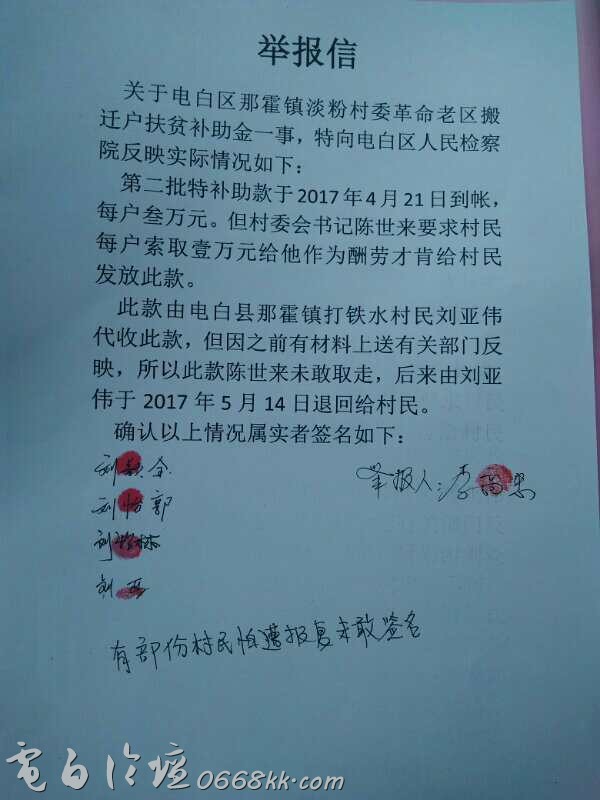 举报信
关于电白区那霍镇淡粉村委革命老区搬
迁户扶贫补助金一事，特向电白区人民检察
院反映实际情况如下：
第二批特补助款于2017年4月21日到帐，
每户叁万元。但村委会书记陈世来要求村民
每户索取壹万元给他作为酬劳才肯给村民
发放此款。
此款由电白县那霍镇打铁水村民刘亚伟
代收此款，但因之前有材料上送有关部门反
映，所以此款陈世来未敢取走，后来由刘亚
伟于2017年5月14日退回给村民。
确认以上情况属实者签名如下：
刘
举报人：李
刘怡郭
刘
刘亚
有部份村民怕遭报复未敢签名
电白论坛0668kk.com